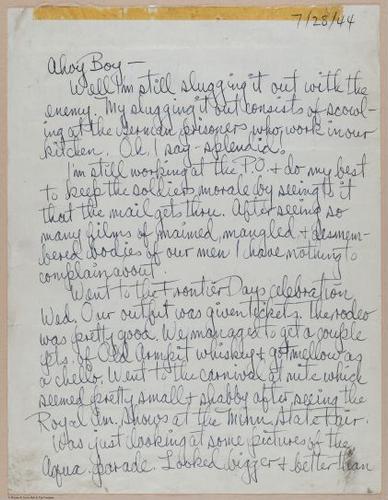 7/28/44
Ahoy Boy —
Well I'm still slugging it out with the
enemy. My slugging it out consists of scowl-
ing at the German prisoners who work in our
kitchen. Oh, I say - splendid.
I'm still working at the P.O. & do my best
to keep the soldiers morale by seeing to it
that the mail gets thru. After seeing so
many films of maimed, mangled & dismem-
bered bodies of our men I have nothing to
complain about.
Went to the Frontier Days celebration
Wed. Our outfit was given tickets. The rodeo
was pretty good. We managed to get a couple
pts. of Old Armpit whiskey & got mellow as
a cello. Went to the carnival at nite which
seemed pretty small & shabby after seeing the
Royal Am. Shows at the Minn. State Fair.
Was just looking at some pictures of the
Aqua. parade. Looked bigger & better than